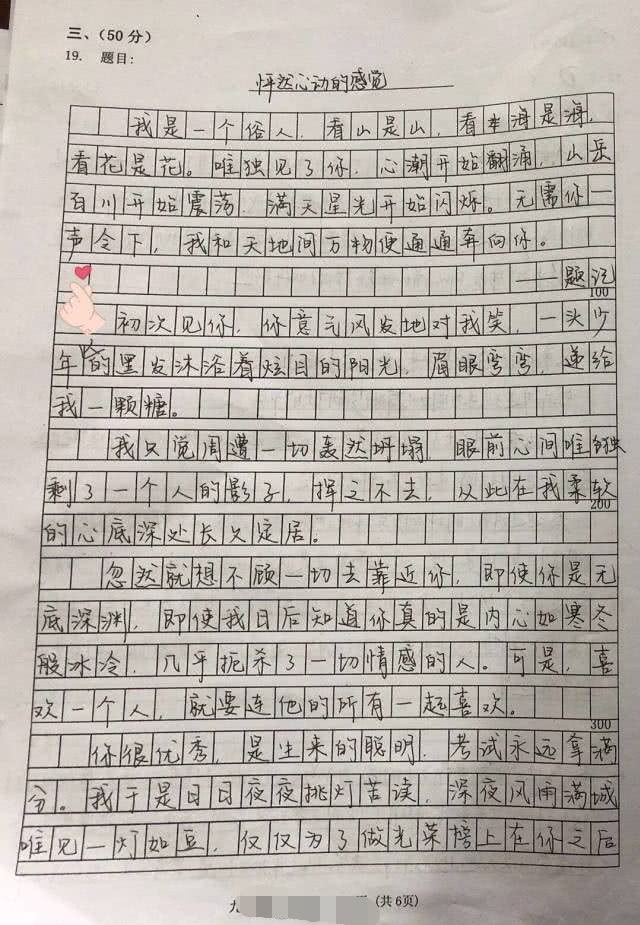 三、(50分)
19. 题目:
怦然心动的感觉
我是一个俗人，看山是山，看海是海，
看花是花。唯独见了你，心潮开始翻涌，山岳
百川开始震荡，满天星光开始闪烁。无需你一
声令下，我和天地间万物便通通奔向你。
——题记
100
初次见你，你意气风发地对我笑，一头少
年的黑发沐浴着炫目的阳光，眉眼弯弯，递给
我一颗糖。
我只觉周遭一切轰然坍塌，眼前心间唯独
剩了一个人的影子，挥之不去，从此在我柔软
200
的心底深处长久定居。
忽然就想不顾一切去靠近你，即使你是无
底深渊，即使我日后知道你真的是内心如寒冬
般冰冷，几乎扼杀了一切情感的人。可是，喜
欢一个人，就要连他的所有一起喜欢。
300
你很优秀，是生来的聪明，考试永远拿满
分。我于是日日夜夜挑灯苦读，深夜风雨满城
唯见一灯如豆，仅仅为了做光荣榜上在你之后
九 (共6页)